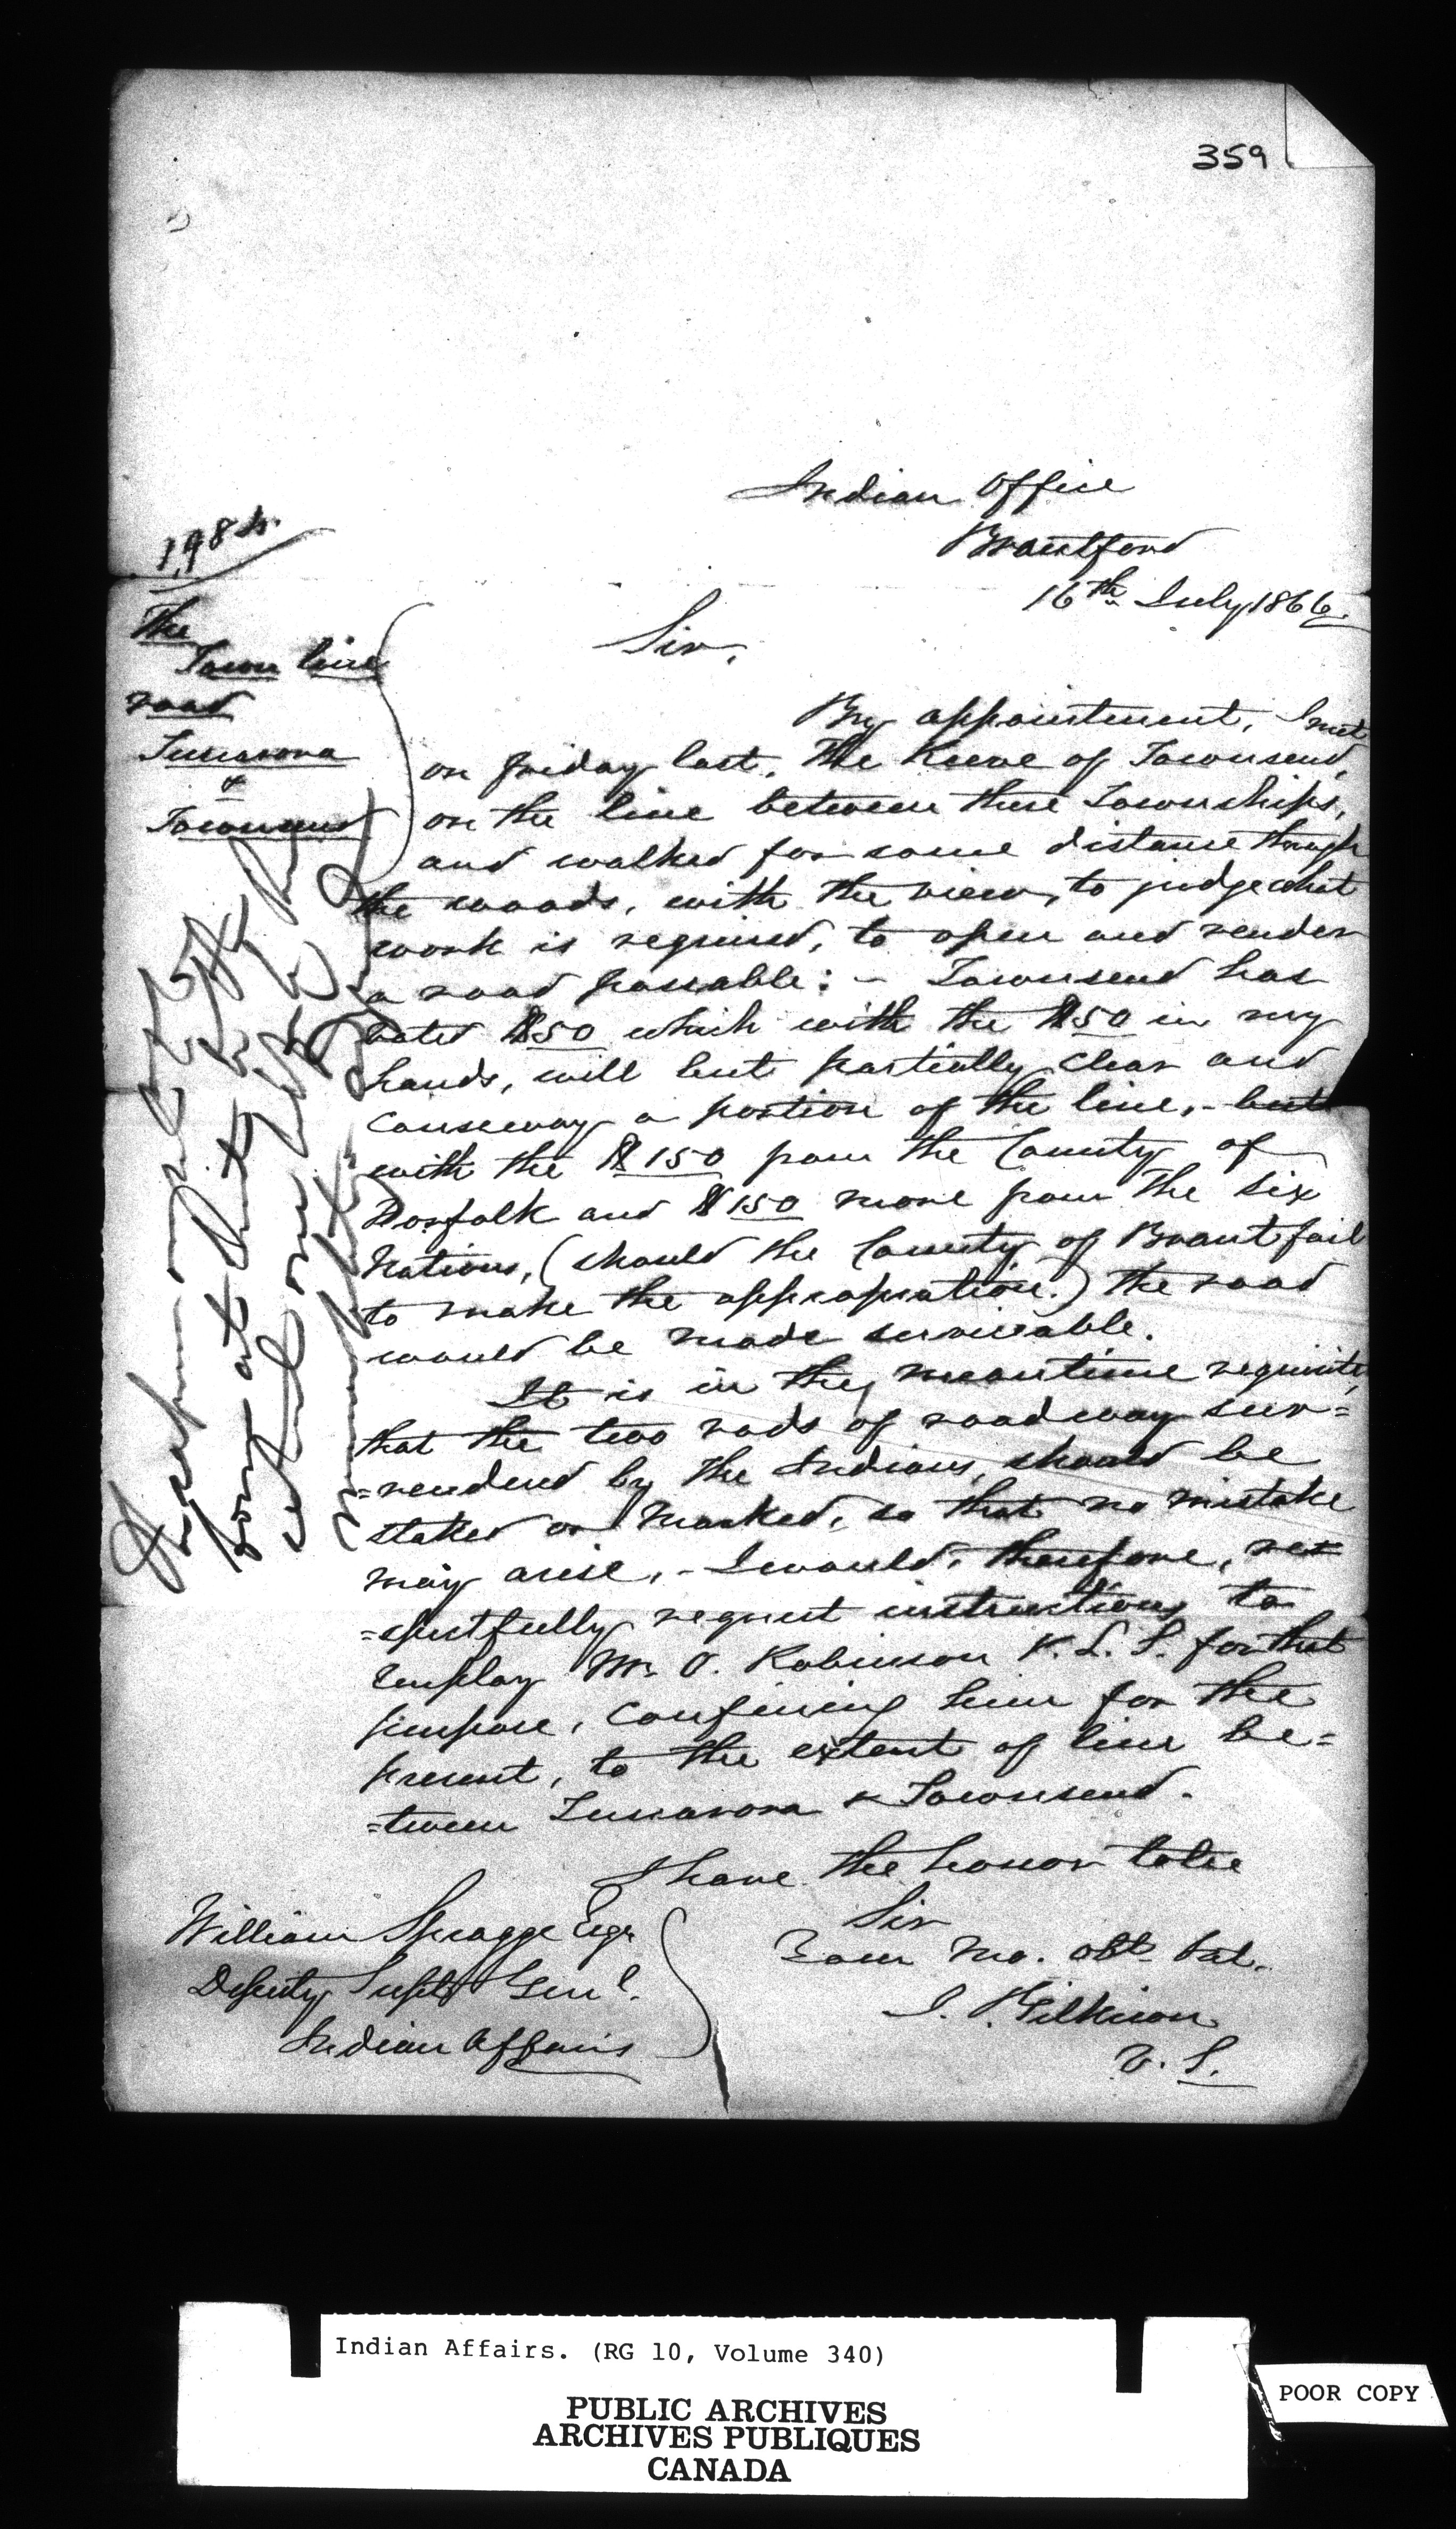 359
Indian Office
Brantford
16th July 1866.
1984.
The
Town line
road
Tuscarora
&
Townsend
Sir,
By appointment, I met
on friday last, The Reeve of Townsend,
on the line between these Townships,
and walked for some distance through
the woods, with the view, to judge what
work is required, to open and render
a road passable: - Townsend has
voted $50 which with the $50 in my
hands, will but partially clear and
causeway a portion of the line, - but
with the $150 from the County of
Norfolk and $150 more from the Six
Nations, (should the County of Brant fail
to make the appropriation.) the road
would be made serviceable.
It is in the meantime requisite,
that the two rods of roadway sur=
=rendered by the Indians, should be
staked or marked, so that no mistake
may arise, - I would, therefore, res=
=pectfully request instructions to
employ Mr O. Robinson P. L. S. for that
purpose, confining him for the
present, to the extent of line be=
=tween Tuscarora & Townsend.
I have the honor to be
Sir
Your Mo. Obt. Svt.
J. T. Gilkison
V. S.
William Spragge Esqr
Deputy Supt Genl.
Indian Affairs
Indian Affairs. (RG 10, Volume 340)
PUBLIC ARCHIVES
ARCHIVES PUBLIQUES
CANADA
POOR COPY